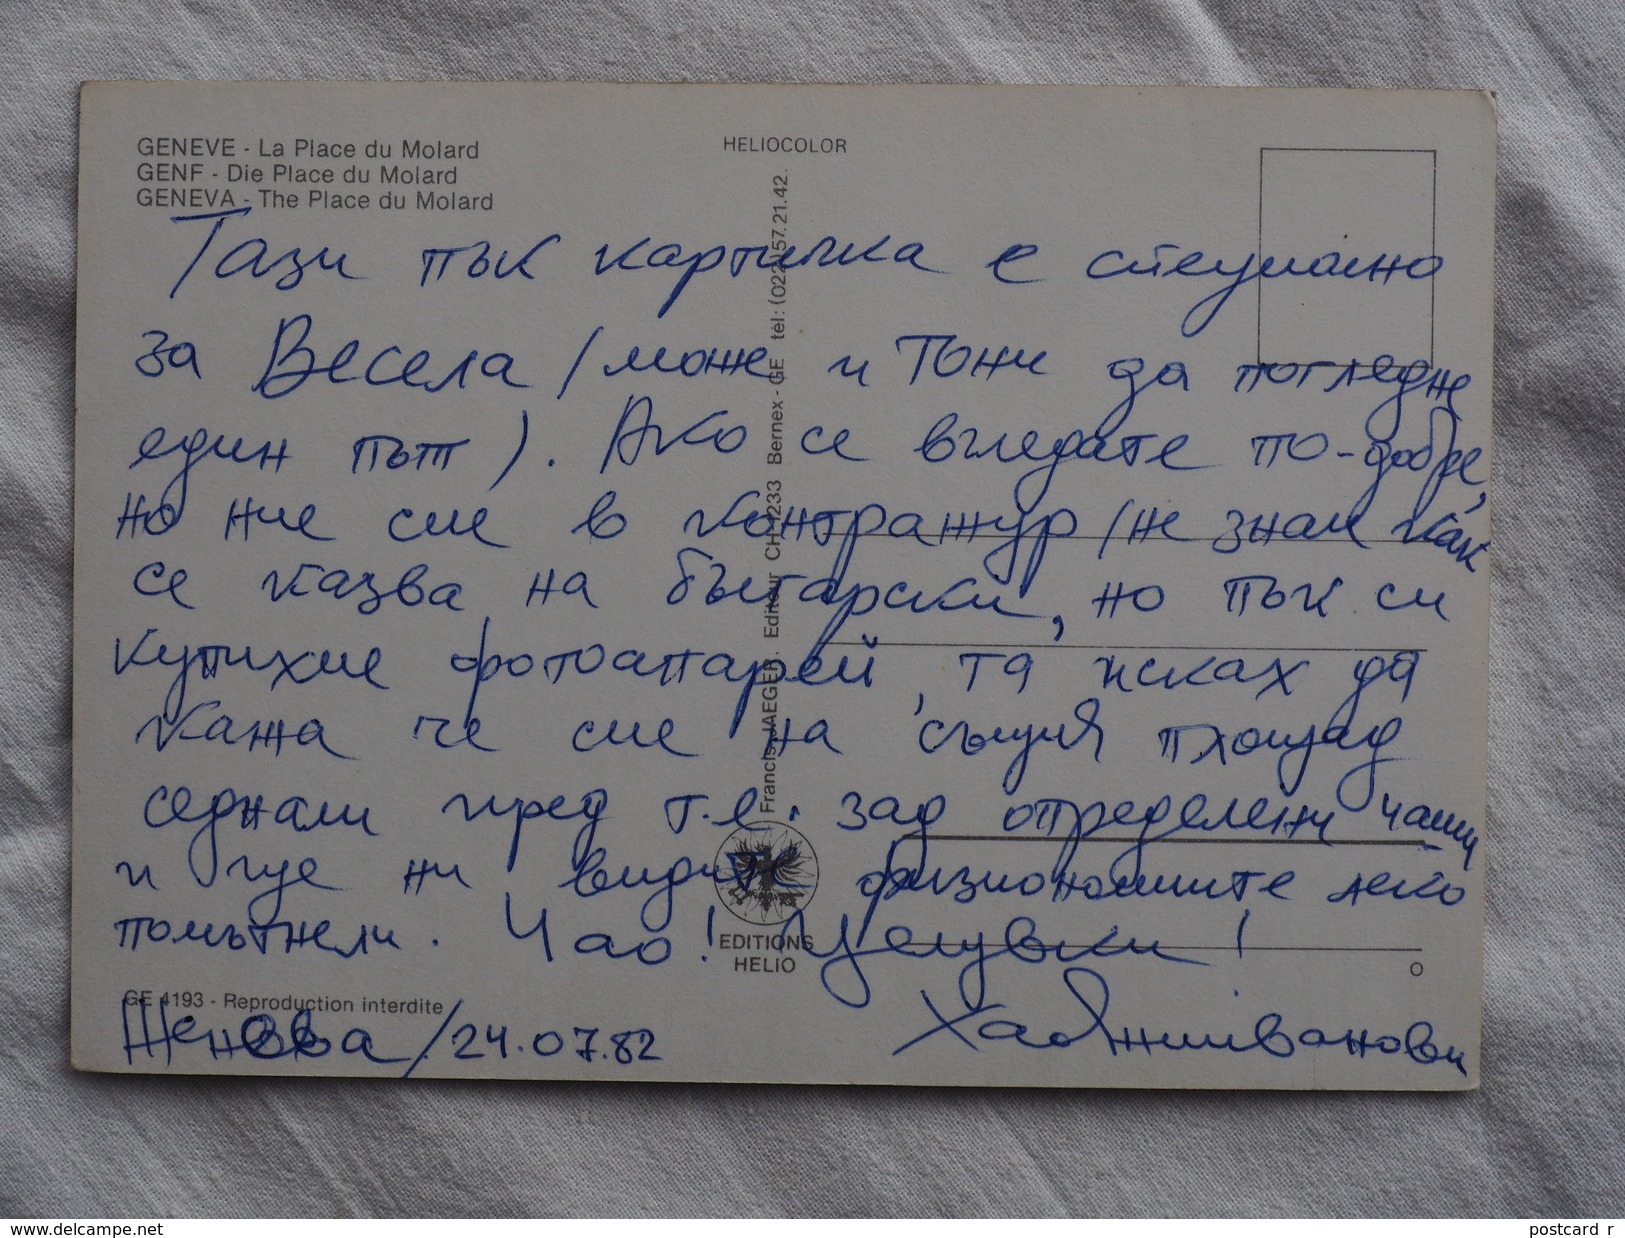 GENEVE - La Place du Molard
GENF - Die Place du Molard
GENEVA - The Place du Molard
HELIOCOLOR
Тази пък картичка е специално
за Весела /може и Тони да погледне
един път). Ако се вгледате по-добре,
но ние сме в контражур /не знам как
се казва на български, но пък си
купихме фотоапарат, та исках да
кажа че сме на същия площад
седнали пред т.е. зад определени чаши
и ще ни видите физиономиите леко
помътнели. Чао! Целувки!
Женева/24.07.82
Хаджииванови
Francis JAEGER. Editeur CH-1233 Bernex - GE tél: (022) 57.21.42.
EDITIONS
HELIO
GE 4193 - Reproduction interdite
www.delcampe.net
postcard_r